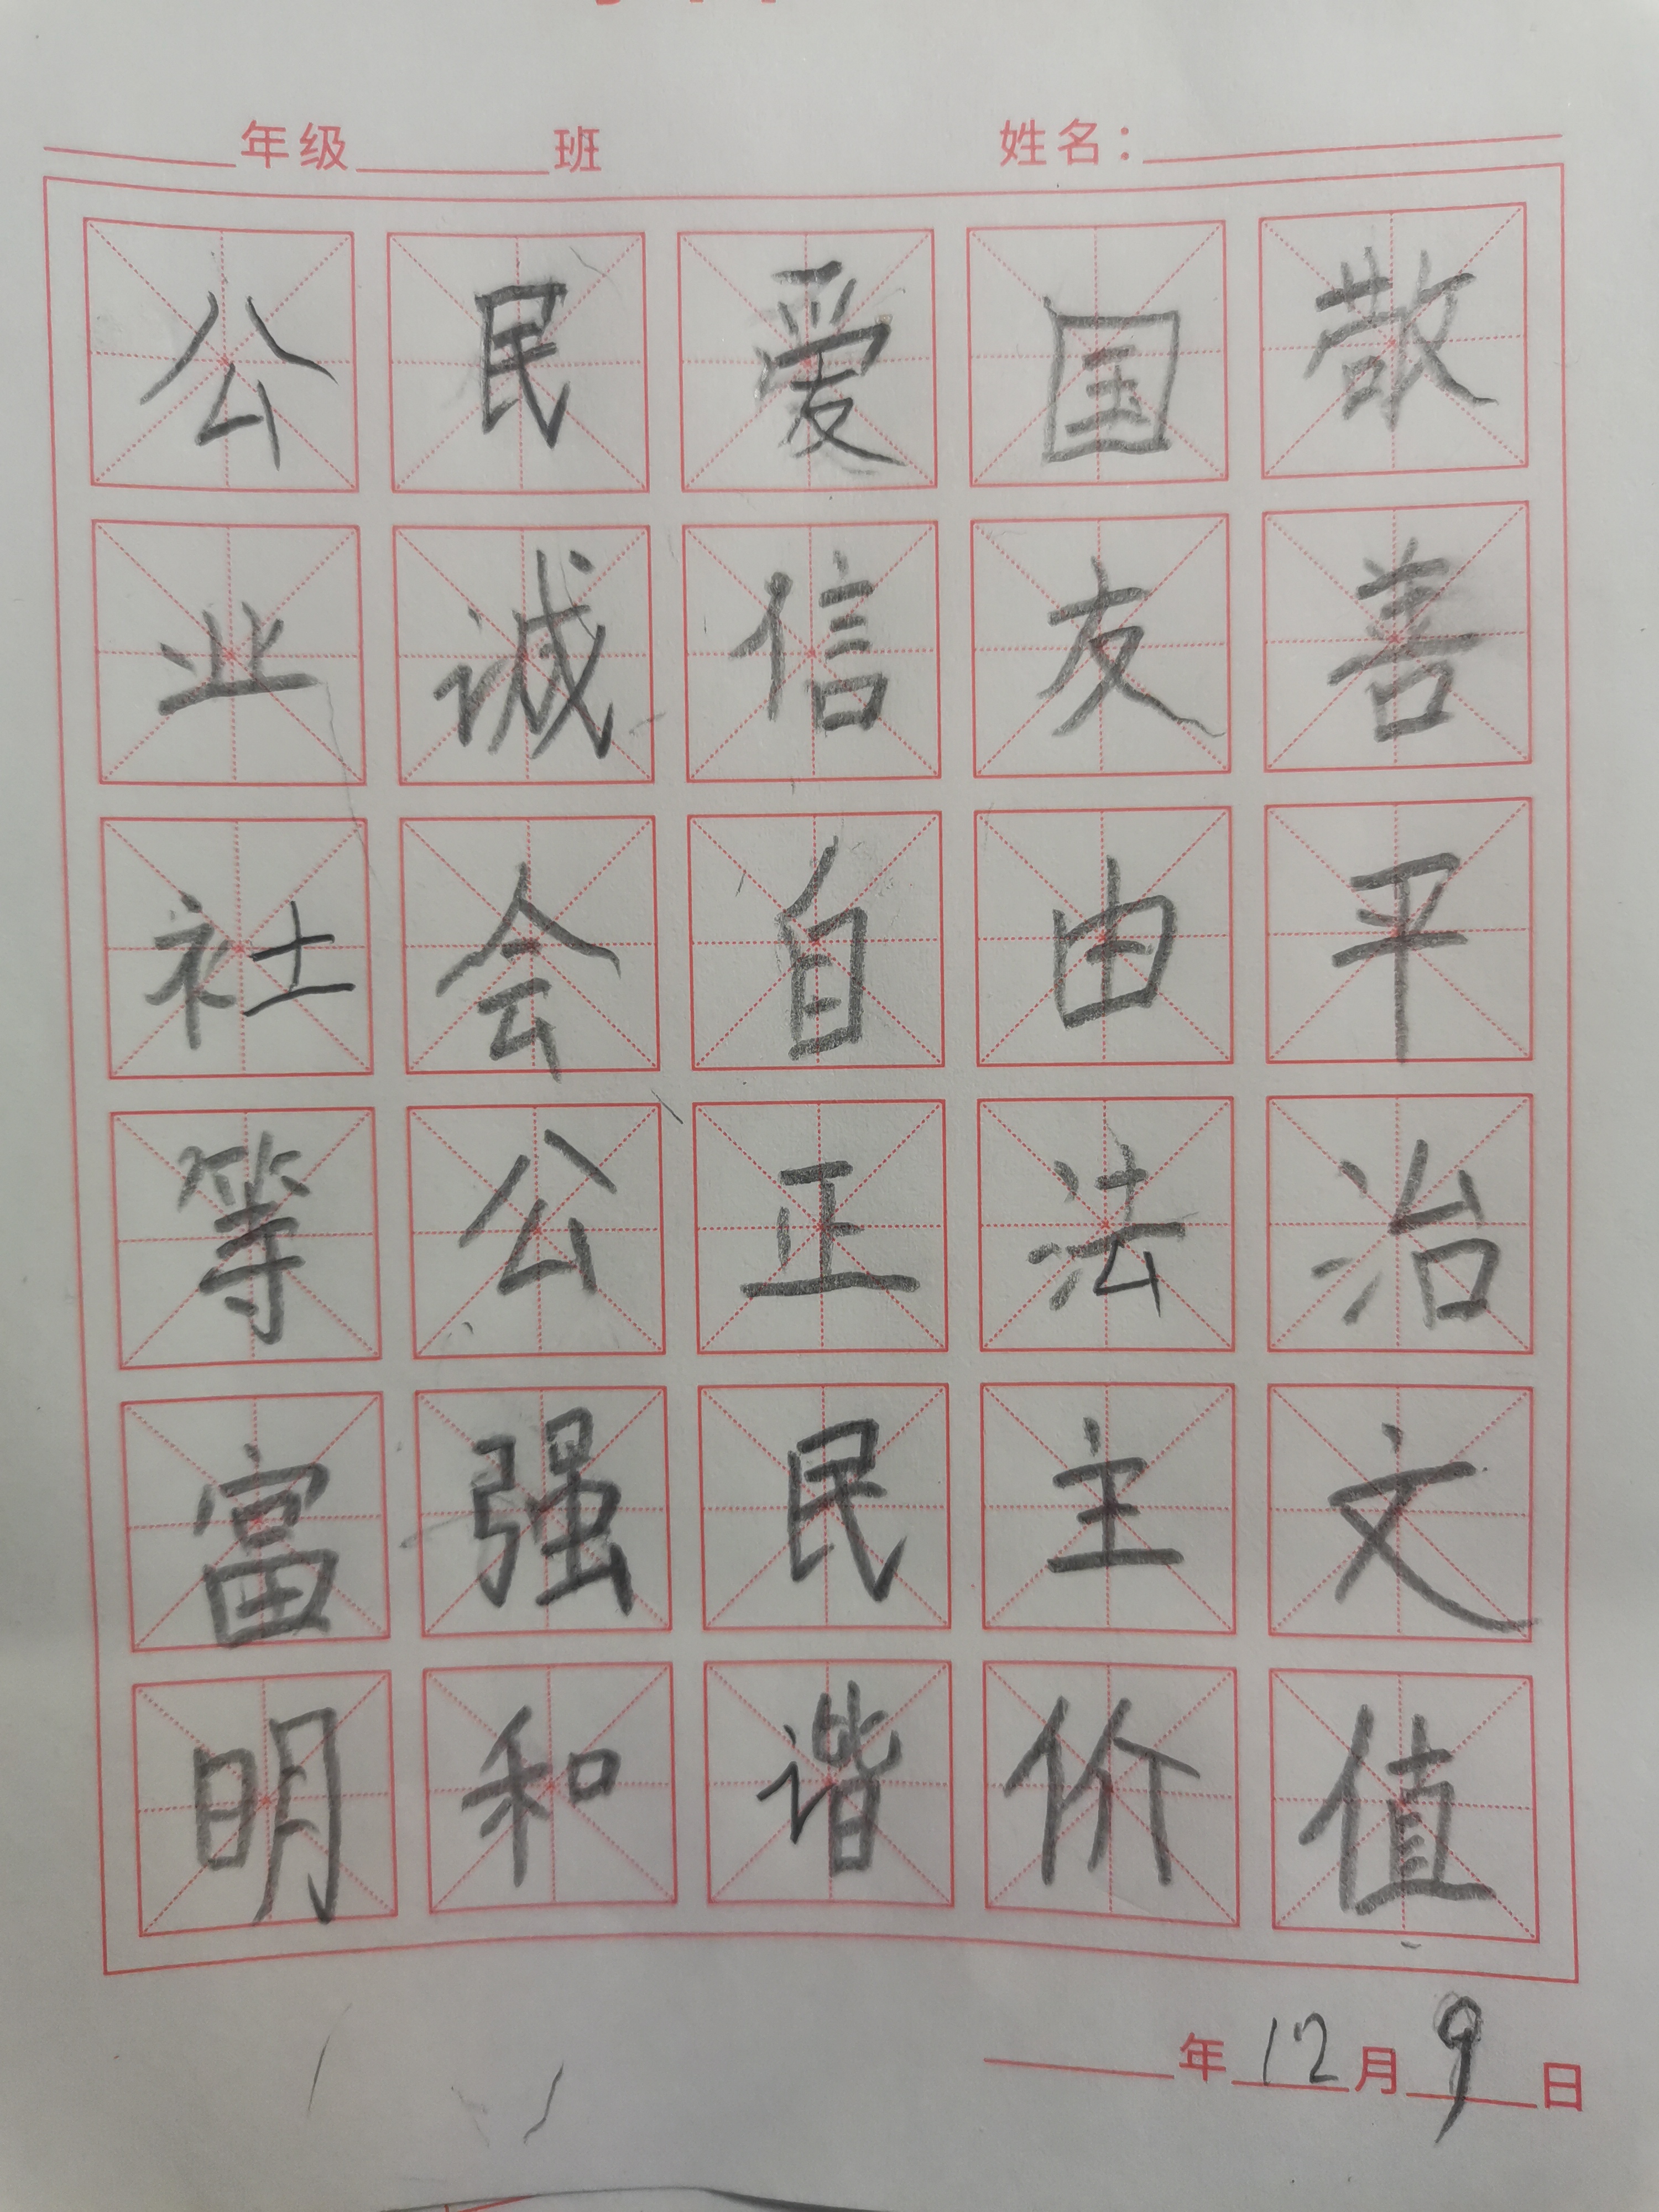 年级 班 姓名：
公民爱国敬
业诚信友善
社会自由平
等公正法治
富强民主文
明和谐价值
年12月9日